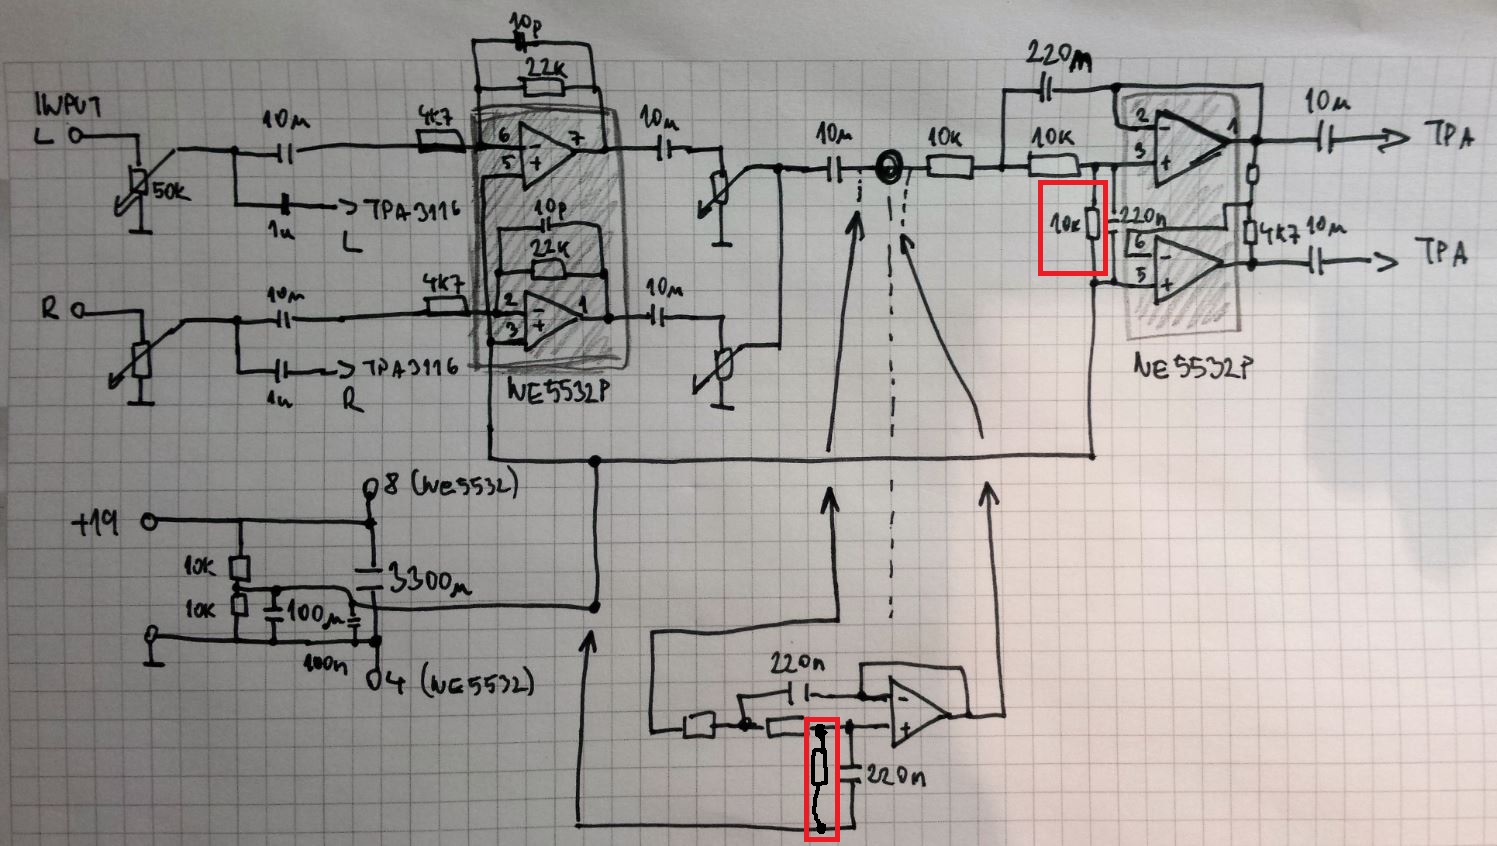 INPUT
L
50K
10µ
1u
TPA3116
L
4K7
10p
22K
6
5
7
10µ
10µ
10K
220n
10K
10K
220n
2
3
1
6
5
4K7
10µ
TPA
10µ
TPA
NE5532P
R
10µ
1u
TPA3116
R
4K7
10p
22K
2
3
1
10µ
NE5532P
8 (NE5532)
+19
10K
10K
100µ
3300µ
100n
4 (NE5532)
220n
220n
-
+